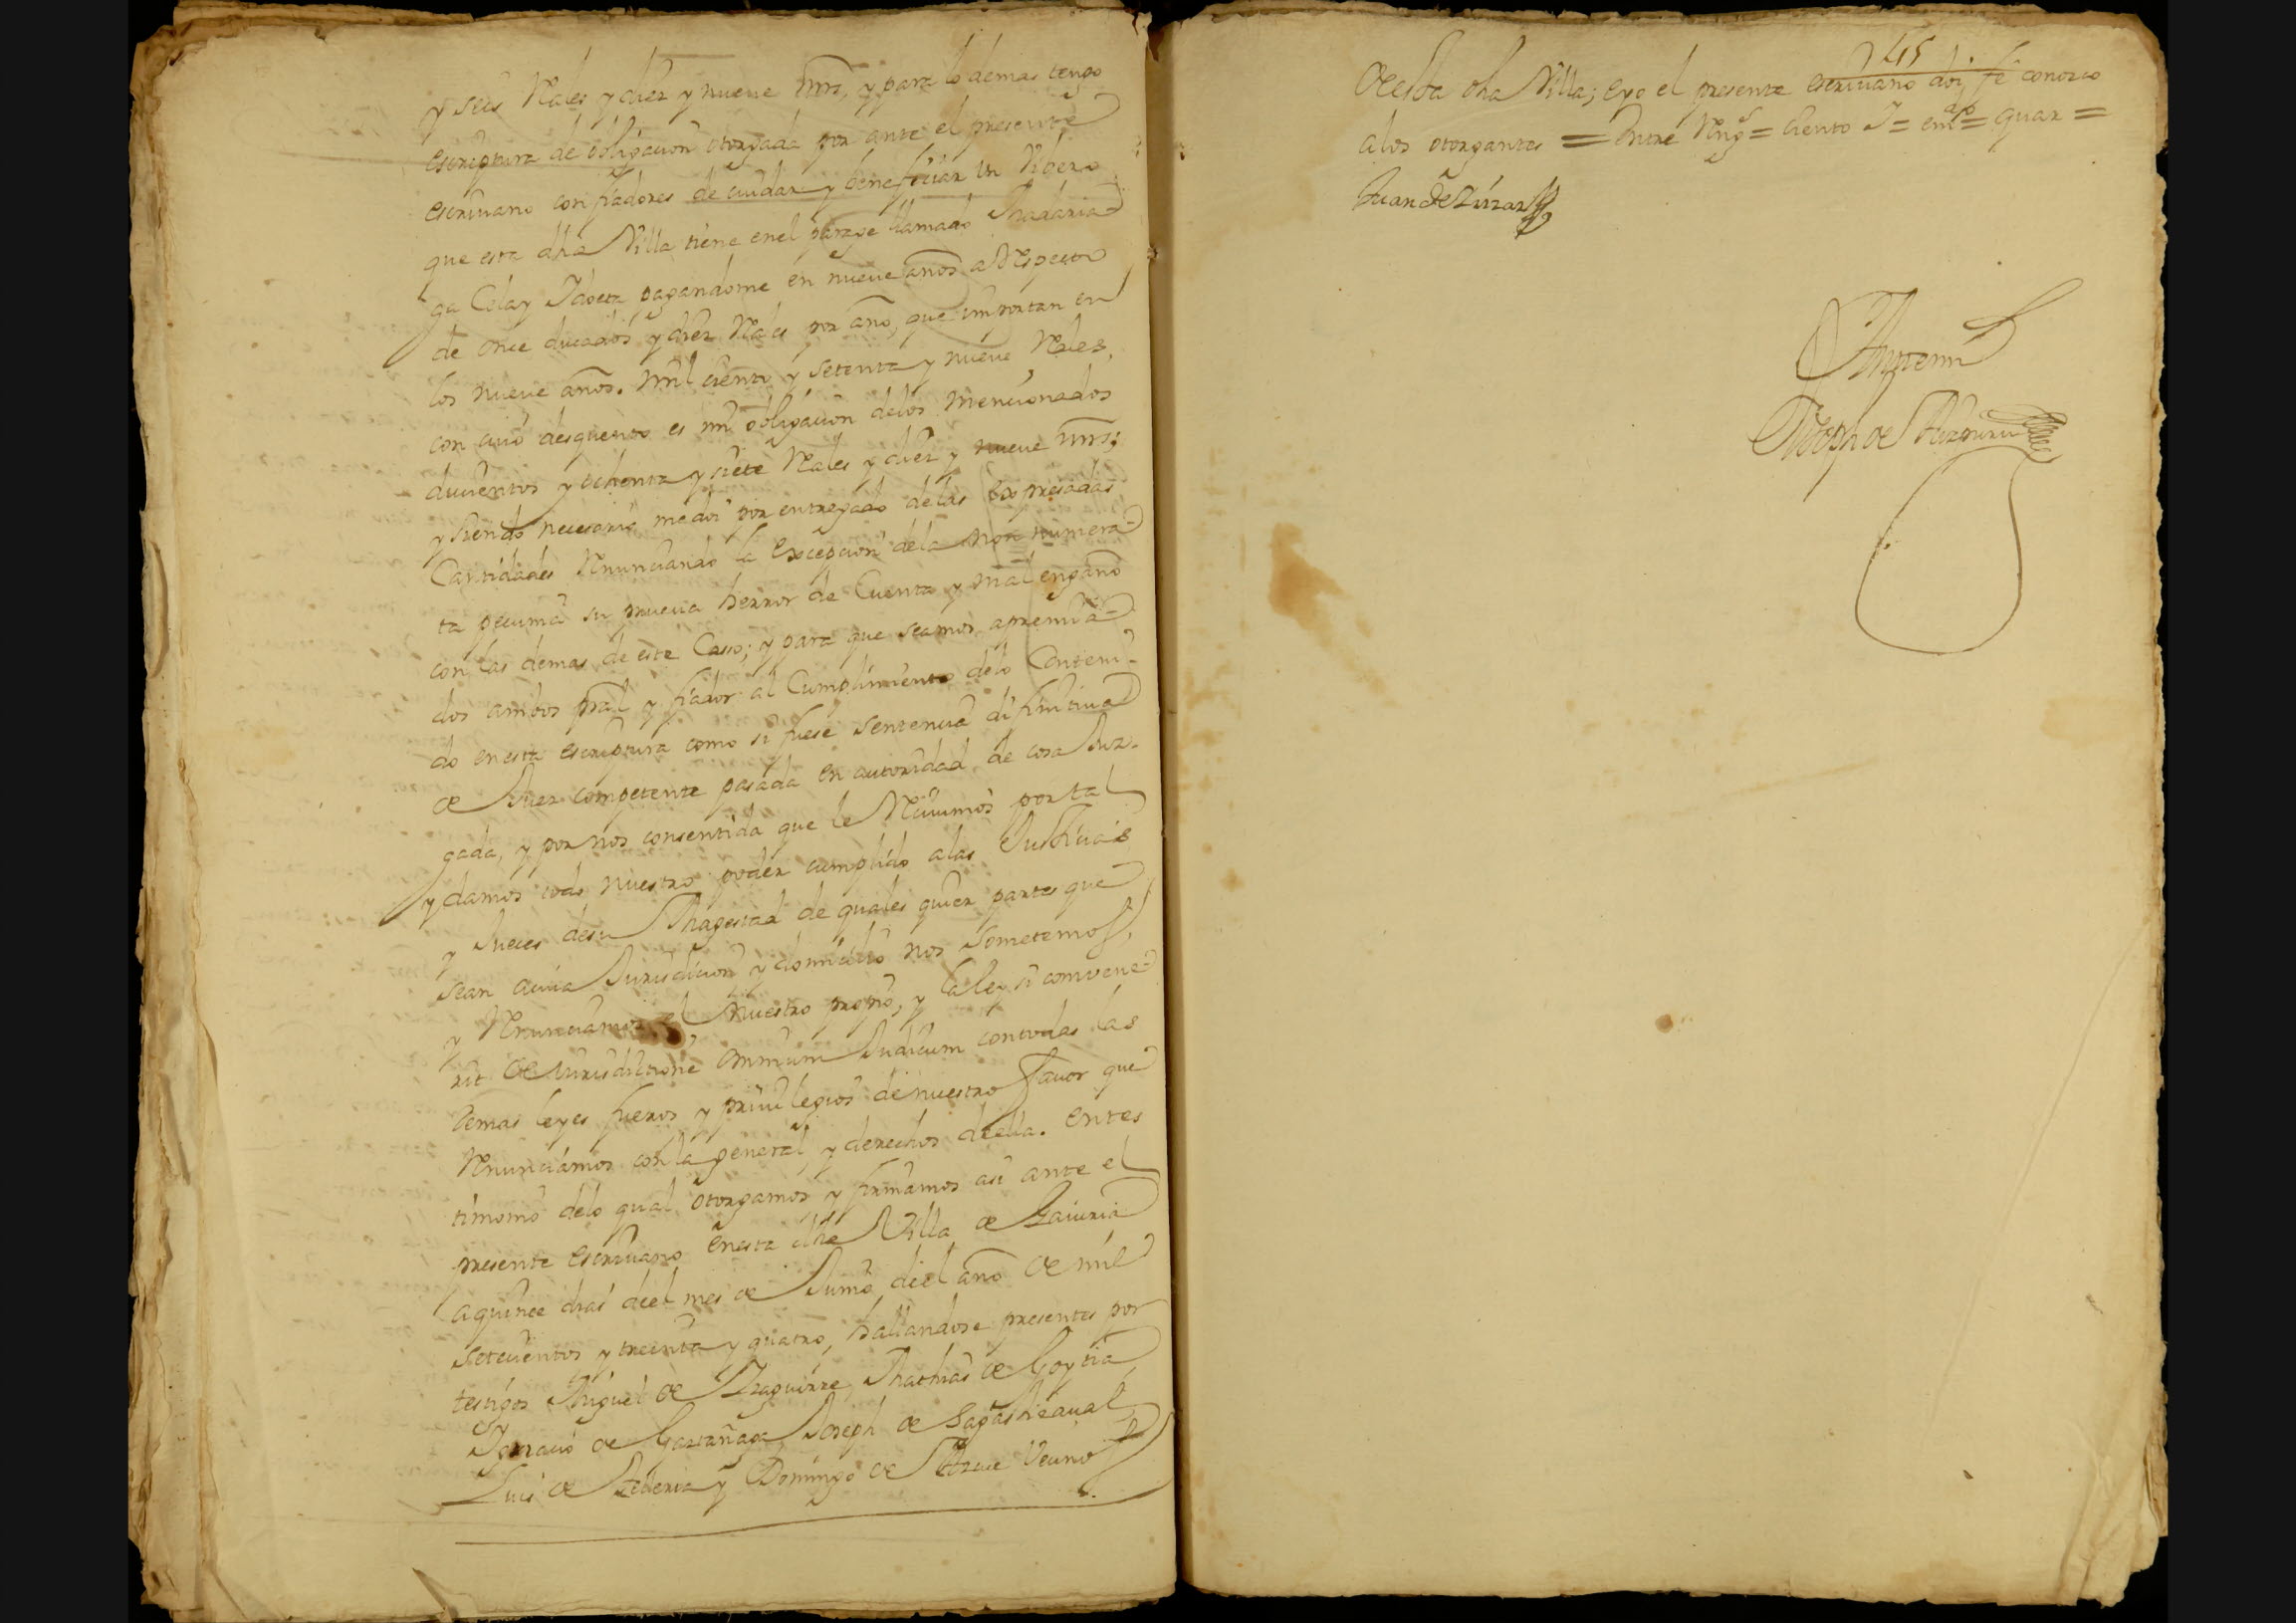 y seis Rales y diez y nueve mrs, y para lo demas tengo
escriptura de obligacion otorgada por ante el presente
escriuano con fiadores de cuidar y beneficiar un Viuero
que esta dha Villa tiene en el parage llamado Madaria-
ga Celay Idoeta pagandome en nueve años a Respecto
de once ducados y diez Rales por año, que importan en
los nueve años. mil ciento y setenta y nueve Rales,
con cuio desquento es mi obligacion delos mencionados
ducientos y ochenta y siete Rales y diez y nueve mrs;
y siendo necesario medoi por entregado delas expresadas
Cantidades Renunciando la excepcion dela non numera-
ta pecunia su prueua herror de Cuenta y mal engaño
con las demas de este Casso; y para que seamos apremia-
dos ambos pral y fiador al Cumplimiento delo Conteni-
do en esta escriptura como si fuese sentencia difinitiua
de Juez competente pasada en autoridad de cosa Juz-
gada, y por nos consentida que le Reciuimos por tal
y damos todo nuestro poder cumplido alas Justicias
y Jueces desu Magestad de quales quier partes que
sean acuia Jurisdicion y domicilio nos sometemos,
y Renunciamos el nuestro propio, y la ley si convene-
rit de iurisdictione omnium Judicum contodas las
demas leyes fueros y priuilegios de nuestro fauor que
Renunciamos con la general y derechos deella. entes
timonio delo qual otorgamos y firmamos asi ante el
presente escriuano en esta dha Villa de
a quince dias deel mes de Junio deel año de mil
setecientos y treinta y quatro, hallandose presentes por
testigos Miguel de Yzaguirre, Mathias de Goytia,
Ygnacio de Garrañaga Joseph de Sagastizaual,
Luis de y Domingo de Vecinos
245
de esta dha Villa; e yo el presente escriuano doi fe conozco
a los otorgantes = Entre Reng.s = ciento J = em.do = quar =
Juan de Lizar
Antemi
Joseph de